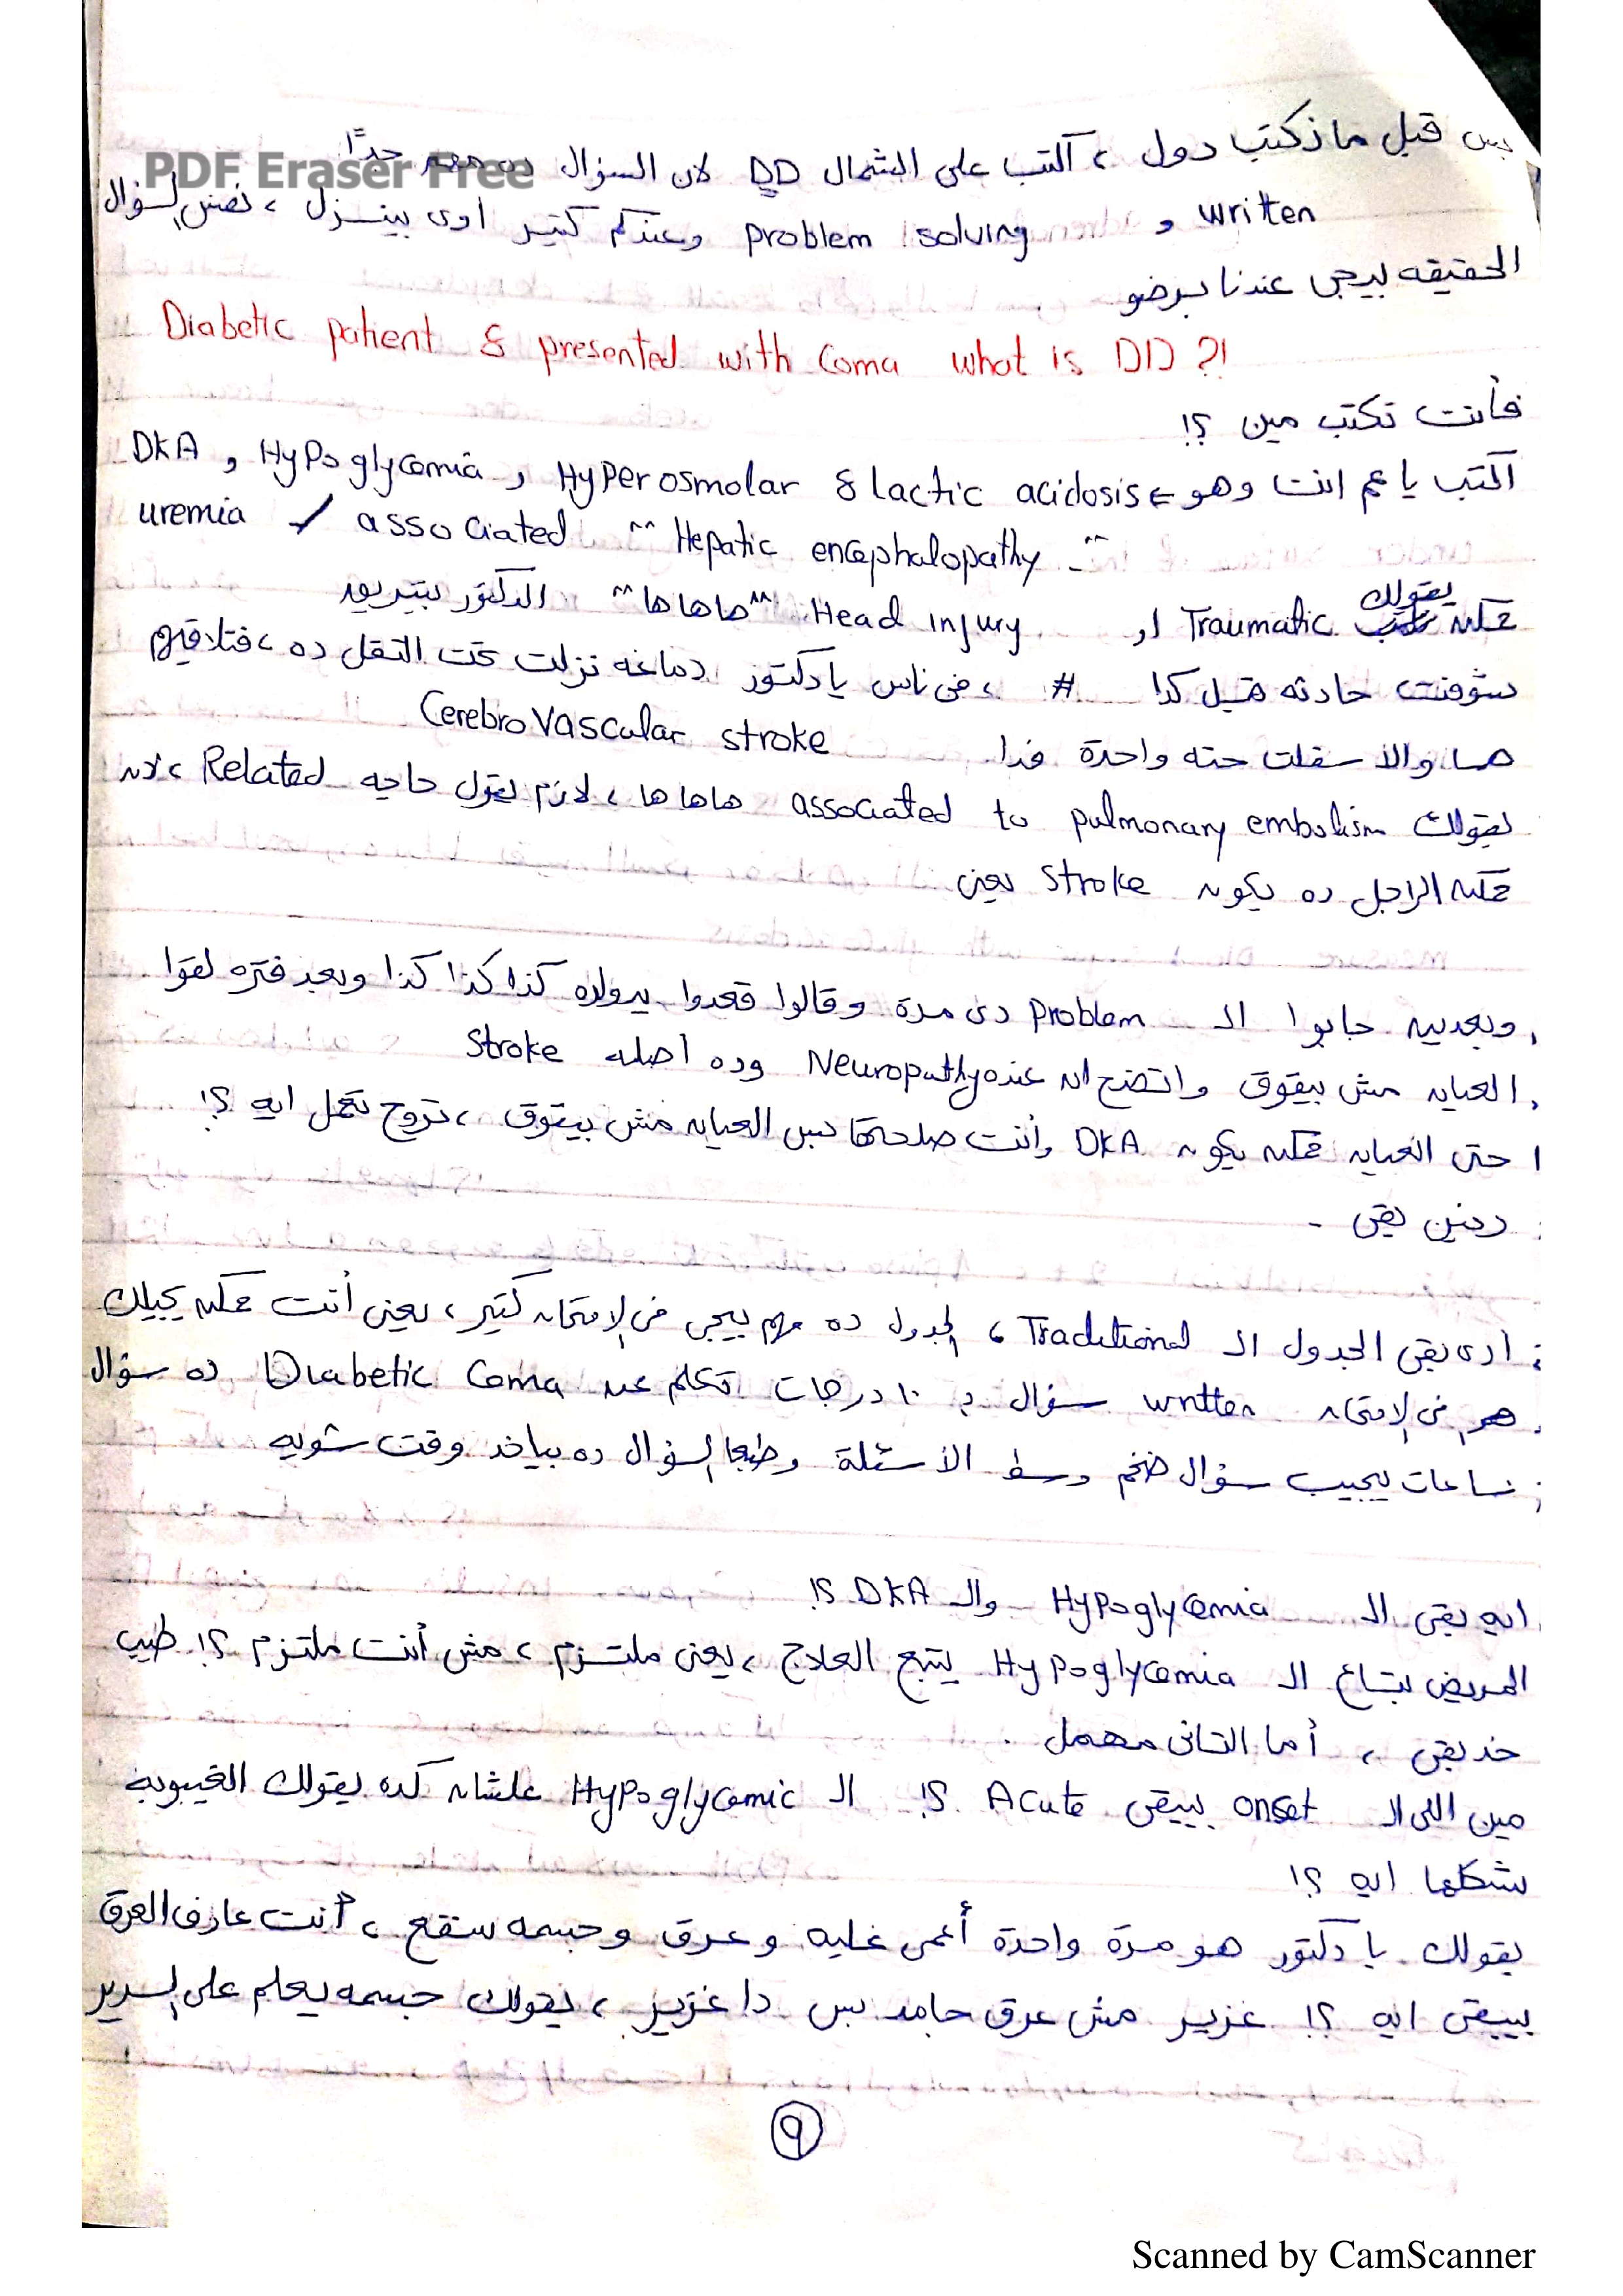 PDF Eraser Free
بس قبل ما نكتب دول ، اكتب على الشمال DD لان السؤال ده مهم جداً
written و problem solving وعندكم كتير اوى بينزل ، نفس السؤال
الحقيقه بيجى عندنا برضو
Diabetic patient & presented with Coma what is DD ?!
فأنت تكتب مين ؟!
اكتب يا عم انت وهو ⇐ DKA و Hypoglycemia و Hyperosmolar & lactic acidosis
uremia / associated " Hepatic encephalopathy "
ممكن يقولك Traumatic او Head injury "هاهاها" الدكتور بيتريق
شوفت حادثه قبل كدا # ، فى ناس يا دكتور دماغه نزلت تحت التقل ده ، فتلاقيهم
هما والأسفلت حته واحدة فدا Cerebrovascular stroke
يقولك associated to pulmonary embolism هاهاها ، لازم يقول حاجه Related ، لان
ممكن الراجل ده يكون stroke يعنى
وبعدين جابوا الـ problem دى مرة وقالوا قعدوا يدوله كذا كذا كذا وبعد فتره لقوا
العيان مش بيفوق واتضح ان عنده Neuropathy وده اصله stroke
حتى العيان ممكن يكون DKA وانت صلحتها بس العيان مش بيفوق ، تروح تعمل ايه ؟!
رنين بقى -
ادى بقى الجدول الـ Traditional ، الجدول ده مهم بيجى فى الإمتحان كتير ، يعنى أنت ممكن يجيلك
هو فى الإمتحان written سؤال بـ ١٠ درجات تكلم عن Diabetic Coma ده سؤال
ساعات يجيب سؤال ضخم وسط الأسئلة وطبعا السؤال ده بياخد وقت شويه
ايه بقى الـ Hypoglycemia والـ DKA ؟!
المريض بتاع الـ Hypoglycemia يتبع العلاج ، يعنى ملتزم ، مش أنت ملتزم ؟! طيب
خد بقى ، أما التانى مهمل .
مين اللى الـ onset بيبقى Acute ؟! الـ Hypoglycemic علشان كده يقولك الغيبوبة
شكلها ايه ؟!
يقولك يا دكتور هو مرة واحدة أغمى عليه و عرق وجسمه سقع ، أنت عارف العرق
بيبقى ايه ؟! غزير مش عرق جامد بس دا غزير ، يقولك جسمه يعلم على السرير
٩
Scanned by CamScanner